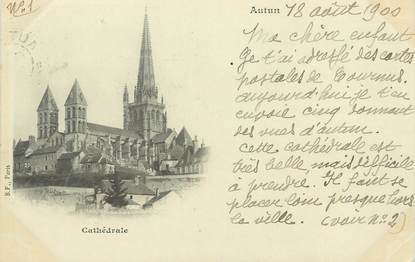 N°1
Autun 18 août 1900
Ma chère enfant
Je t'ai adressé des cartes
postales de Tournus.
aujourd'hui je t'en
envoie cinq donnant
des vues d'autun.
Cette cathédrale est
très belle, mais difficile
à prendre. Il faut se
placer loin presque hors
la ville. (voir n° 2)
B.F., Paris
Cathédrale